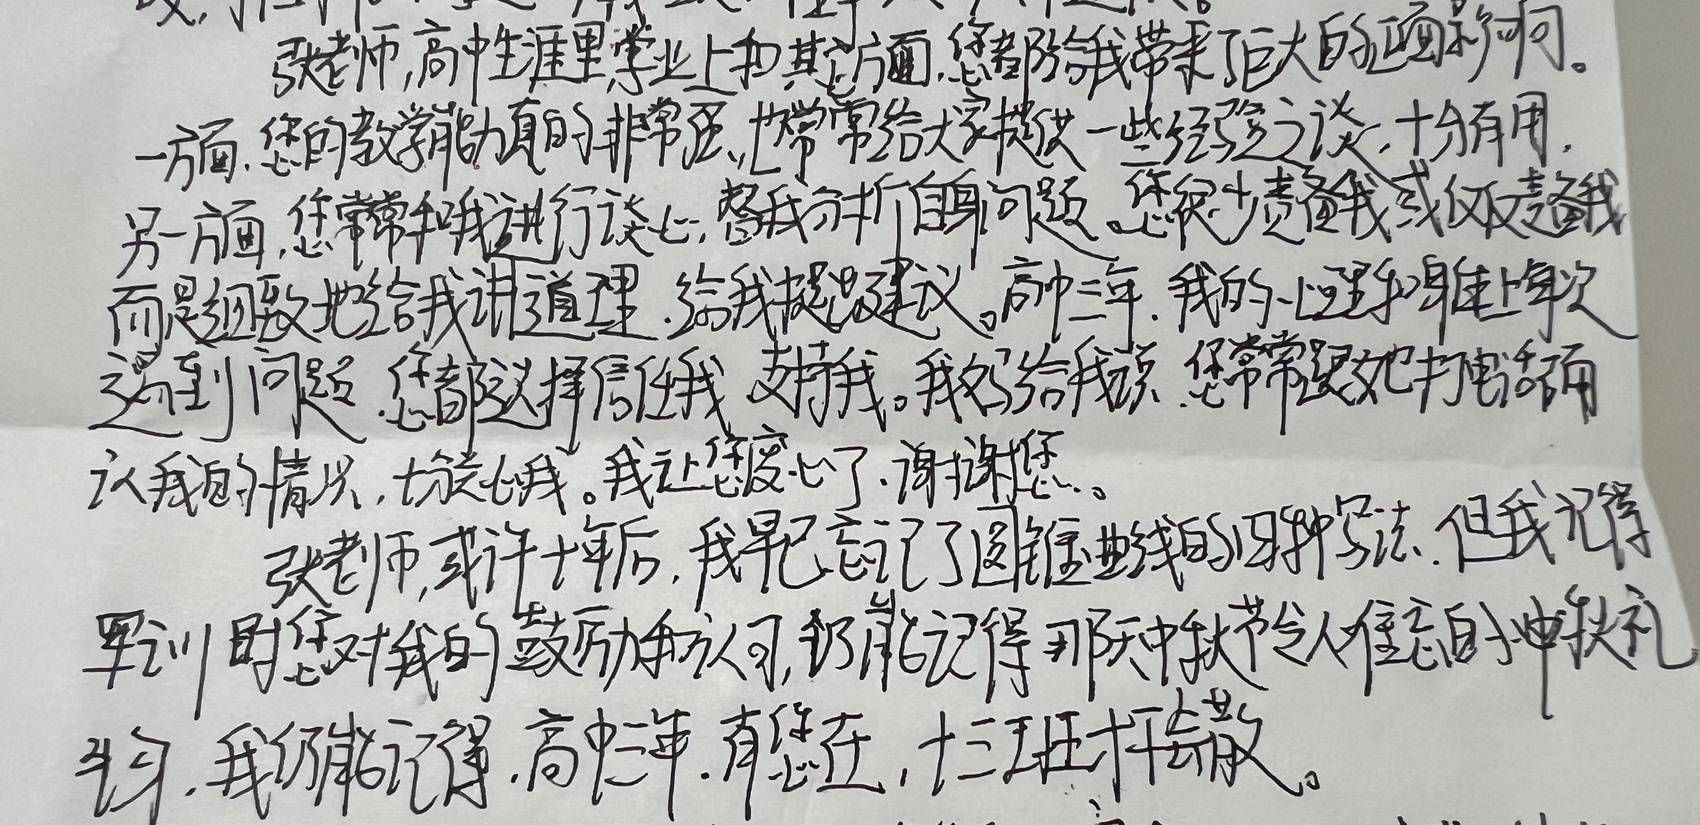 张老师,高中生涯里,学业上和其它方面,您都给我带来了巨大的正面影响。
一方面,您的教学能力真的非常强,也常常给大家提供一些经验之谈,十分有用,
另一方面,您常常和我进行谈心,帮我分析自身问题。您很少责备我或仅仅责备我
而是细致地给我讲道理,给我提出建议。高中三年,我的心理和身体上每次
遇到问题,您都选择信任我,支持我。我妈给我说,您常常跟她打电话确
认我的情况,十分关心我。我让您费心了,谢谢您。
张老师,或许十年后,我早已忘记了圆锥曲线的四种写法,但我记得
军训时您对我的鼓励和认可,仍能记得那天中秋节令人难忘的中秋礼
我仍能记得,高中三年,有您在,十三班才不会散。